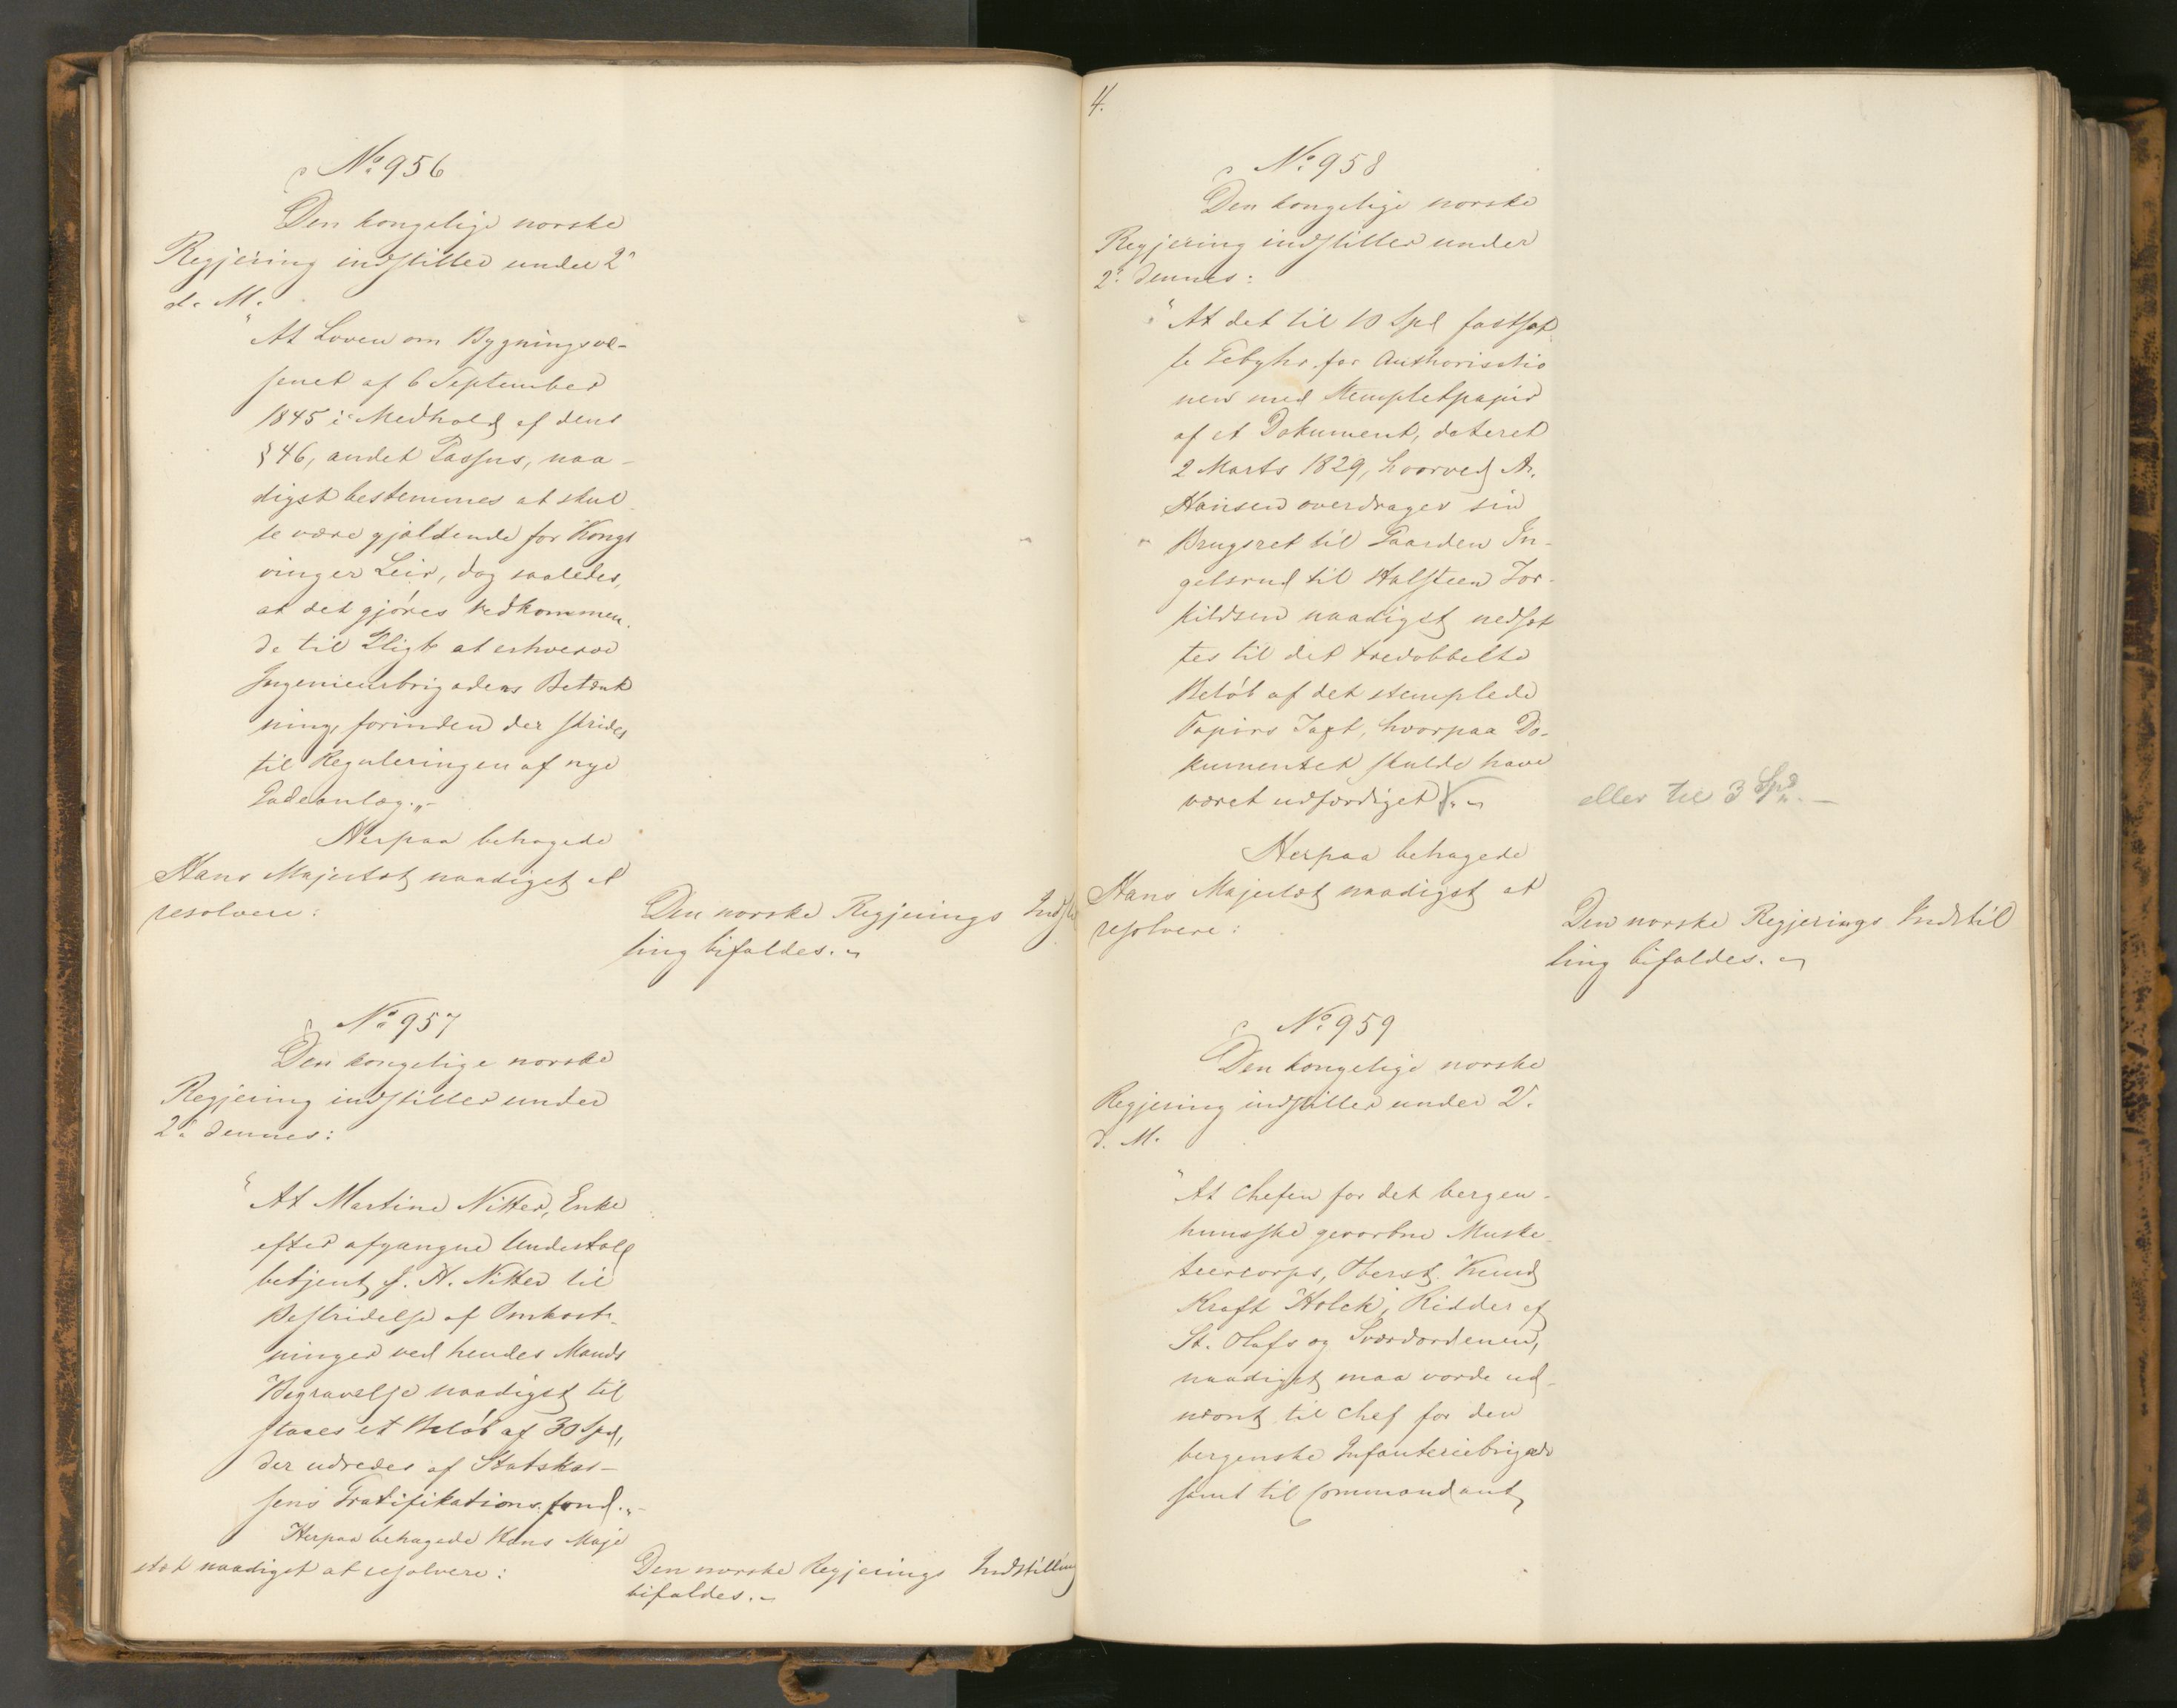 No 956
Den kongelige norske
Regjering indstiller under 2
d. M.
"At Loven om Bygningsvæ-
senet af 6 September
1845 i Medhold af dens
§ 46, andet Passus, naa-
digst bestemmes at skul
le være gjældende for Kongs
vinger Leir, dog saaledes,
at det gjøres Vedkommen
de til Pligt at erhverve
Ingenieurbrigadens Betænk
ning, forinden der skrides
til Reguleringen af nye
Gadeanlæg."-
Herpaa behagede
Hans Majestæt naadigst at
resolvere:
Den norske Regjerings Indstil
ling bifaldes.-
No 957
Den kongelige norske
Regjering indstiller under
2 dennes:
"At Martine Nitter, Enke
efter afgangne Undertold
betjent J. H. Nitter til
Bestridelse af Omkost-
ninger ved hendes Mands
Begravelse naadigst til
staaes et Beløb af 30 Spd,
der udredes af Statskas-
sens Gratifikationsfond."-
Herpaa behagede Hans Maje
stæt naadigst at resolvere:
Den norske Regjerings Indstilling
bifaldes.-
4.
No 958
Den kongelige norske
Regjering indstiller under
2 dennes:
"At det til 10 Spd fastsat
te Gebyhr for Authorisatio
nen med Stempletpapir
af et Dokument, dateret
2 Marts 1829, hvorved A.
Hansen overdrager sin
Brugsret til Gaarden In-
gelsrud til Halsteen Tor-
kildsen naadigst nedsæt
tes til det tredobbelte
Beløb af det stemplede
Papirs Taxt, hvorpaa Do-
kumentet skulde have
været udfærdiget".-
eller til 3 Spd.-
Herpaa behagede
Hans Majestæt naadigst at
resolvere:
Den norske Regjerings Indstil
ling bifaldes.-
No 959
Den kongelige norske
Regjering indstiller under 2.
d. M.
"At Chefen for det bergen-
huusske gevorbne Muske-
teercorps, Oberst Knud
Kraft Holck, Ridder af
St. Olafs og Sværdordenen,
naadigst maa vorde ud-
nævnt til Chef for den
bergenske Infanteriebrigade
samt til Commandant